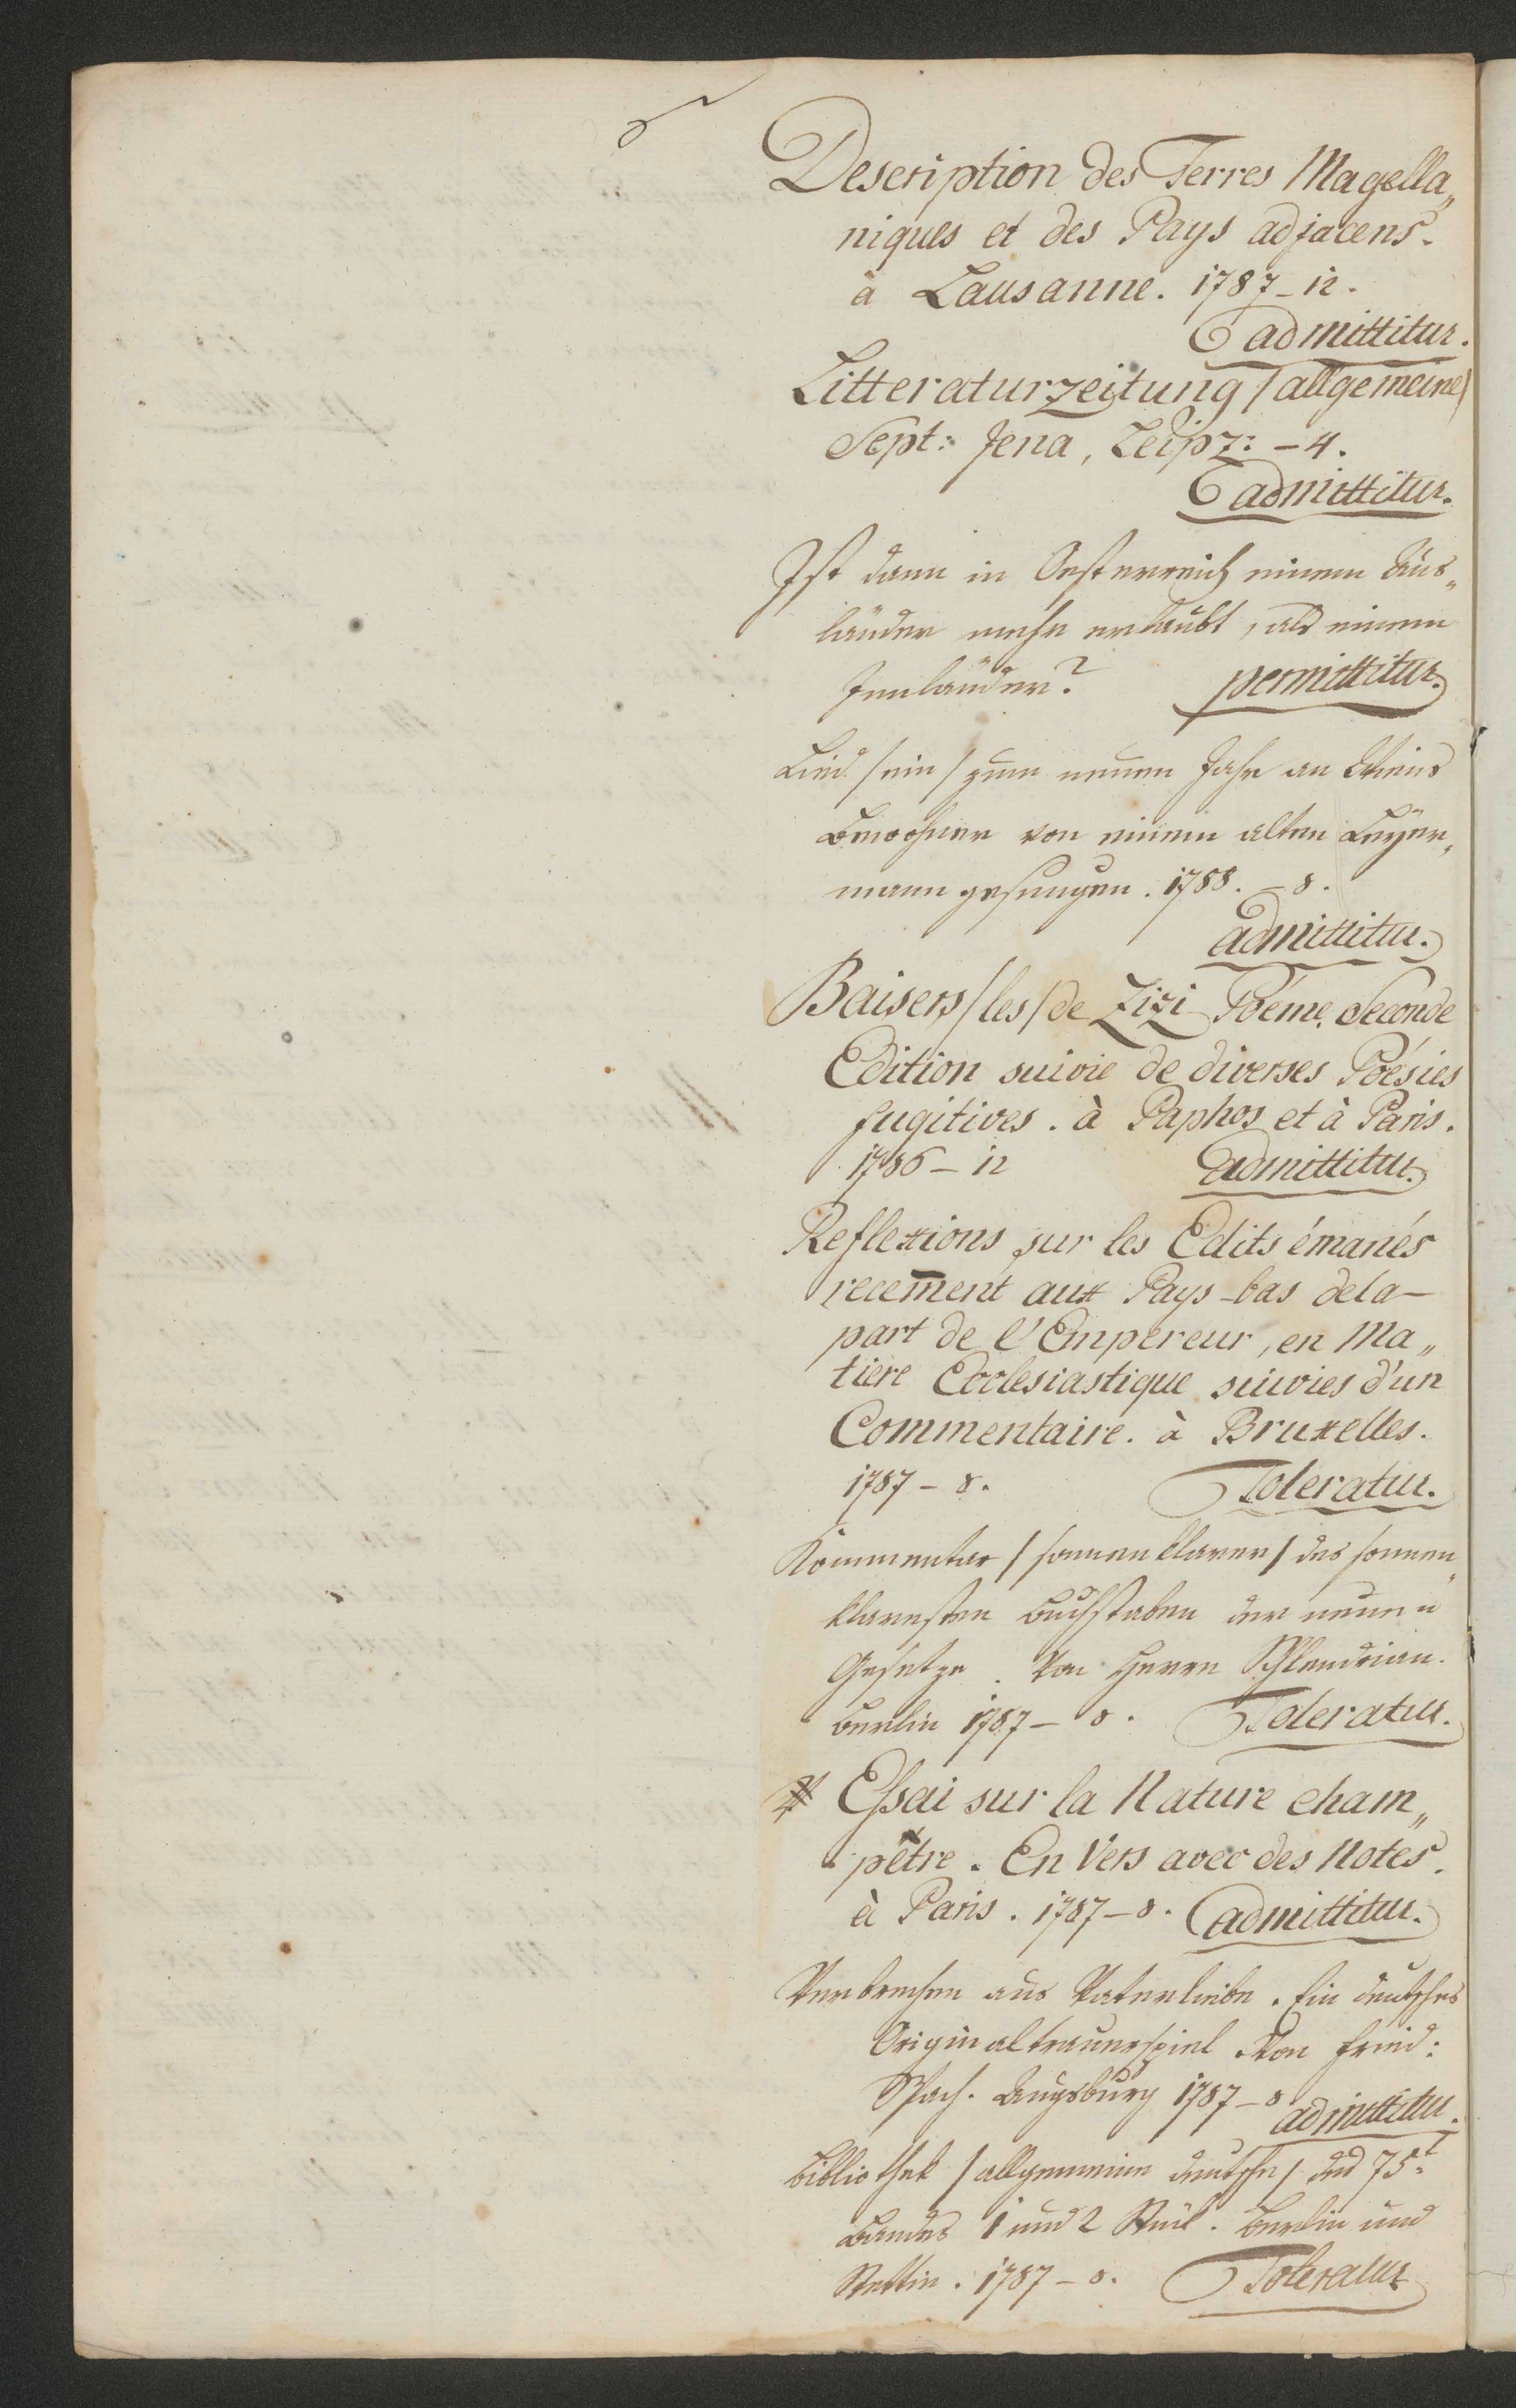 Description des Terres Magella„
niques et des Pays adjacens.
à Lausanne. 1787_12.
admittitur.
Litteraturzeitung /allgemeine/
Sept: Jena, Leipz: – 4.
admittitur.
Ist dann in Oesterreich einem Aus„
länder mehr erlaubt, als einem
Innländer? permittitur.
Lied /ein/ zum neuen Jahr an Wiens
Bewohner von einem alten Leyer„
mann gesungen. 1788. – 8.
admittitur.
Baisers /les/ de Zizi Poéme. Seconde
Edition suivie de diverses Poésies
fugitives. à Paphos et à Paris.
1786 – 12 admittitur.
Reflexions sur les Edits émanés
recem̄ent aux Pays-bas dela–
part de l'Empereur, en Ma„
tiere Ecclesiastique suivies d'un
Commentaire. à Bruxelles.
1787 – 8. Toleratur.
Kommentar /sonnenklarer/ des sonnen„
klaresten Buchstaben der neuen
Gesetze. Von Herrn Schlendrian.
Berlin 1787 – 8. Toleratur.
Essai sur la Nature cham„
pêtre. En Vers avec des Notes.
à Paris. 1787 – 8. admittitur.
Verbrechen aus Vaterliebe. Ein deutsches
Originaltrauerspiel Von Fried:
Spach. Augsburg 1787 – 8 admittitur.
Bibliothek /allgemeine deutsche/ des 75.t
Bandes 1 und 2 Stük. Berlin und
Stettin. 1787 – 8. Toleratur